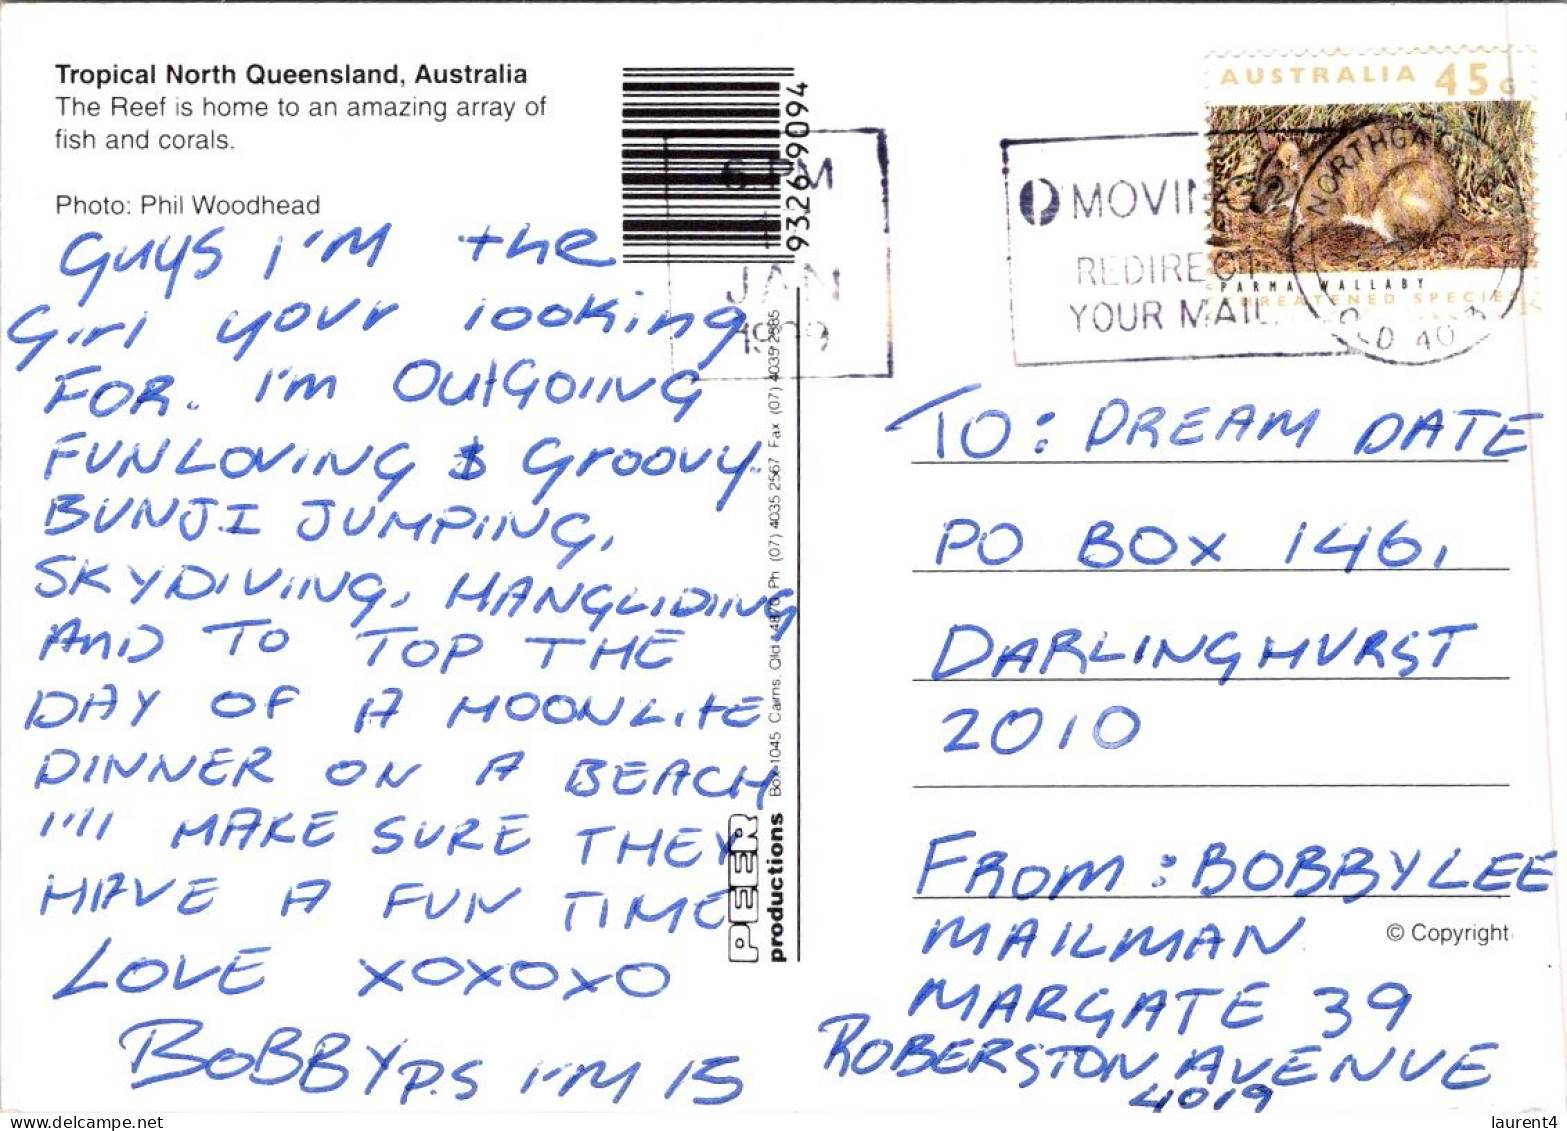 Tropical North Queensland, Australia
The Reef is home to an amazing array of
fish and corals.
Photo: Phil Woodhead
GUYS I'M the
Girl your looking
FOR. I'm OUtGOIING
FUNLOVING & Groovy.
BUNJI JUMPING,
SKYDIVING, HANGLIDING
AND TO TOP THE
DAY OF A MOONLItE
DINNER ON A BEACH
I'll MAKE SURE THEY
HAVE A FUN TIME
LOVE XOXOXO
BOBBY P.S I'M 15
9326 9094
6 PM
JAN
MOVIN
REDIRECT
YOUR MAIL
AUSTRALIA 45c
PARMA WALLABY
THREATENED SPECIES
NORTHGATE
QLD 4013
Box 1045 Cairns. Qld 4870 Ph (07) 4035 2567 Fax (07) 4035 2885
PEER
productions
TO: DREAM DATE
PO BOX 146,
DARLINGHURST
2010
FROM: BOBBY LEE
MAILMAN
MARGATE 39
ROBERSTON AVENUE
4019
© Copyright
https://www.delcampe.net
laurent4